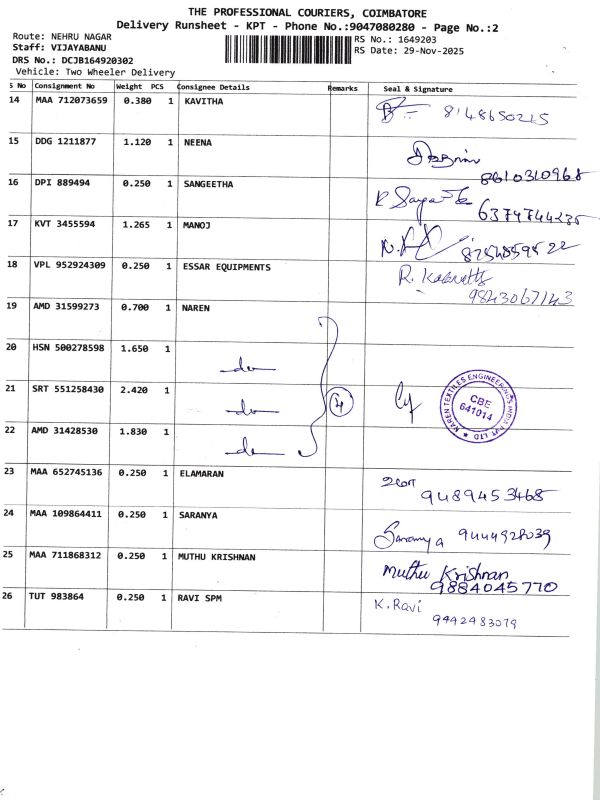 THE PROFESSIONAL COURIERS, COIMBATORE
Delivery Runsheet - KPT - Phone No.:9047080280 - Page No.:2
Route: NEHRU NAGAR
RS No.: 1649203
Staff: VIJAYABANU
RS Date: 29-Nov-2025
DRS No.: DCJB164920302
Vehicle: Two Wheeler Delivery
S No Consignment No Weight PCS Consignee Details Remarks Seal & Signature
14 MAA 712073659 0.380 1 KAVITHA 8148650215
15 DDG 1211877 1.120 1 NEENA
8610310968
16 DPI 889494 0.250 1 SANGEETHA
6374744235
17 KVT 3455594 1.265 1 MANOJ
18 VPL 952924309 0.250 1 ESSAR EQUIPMENTS
9843067143
19 AMD 31599273 0.700 1 NAREN
20 HSN 500278598 1.650 1 do
21 SRT 551258430 2.420 1 do 4
NAREN TEXTILES ENGINEERING INDIA PVT LTD
CBE
641014
22 AMD 31428530 1.830 1 do
23 MAA 652745136 0.250 1 ELAMARAN
9489453468
24 MAA 109864411 0.250 1 SARANYA
Saranya 9444928039
25 MAA 711868312 0.250 1 MUTHU KRISHNAN
Muthu Krishnan
9884045770
26 TUT 983864 0.250 1 RAVI SPM K. Ravi
9442483079